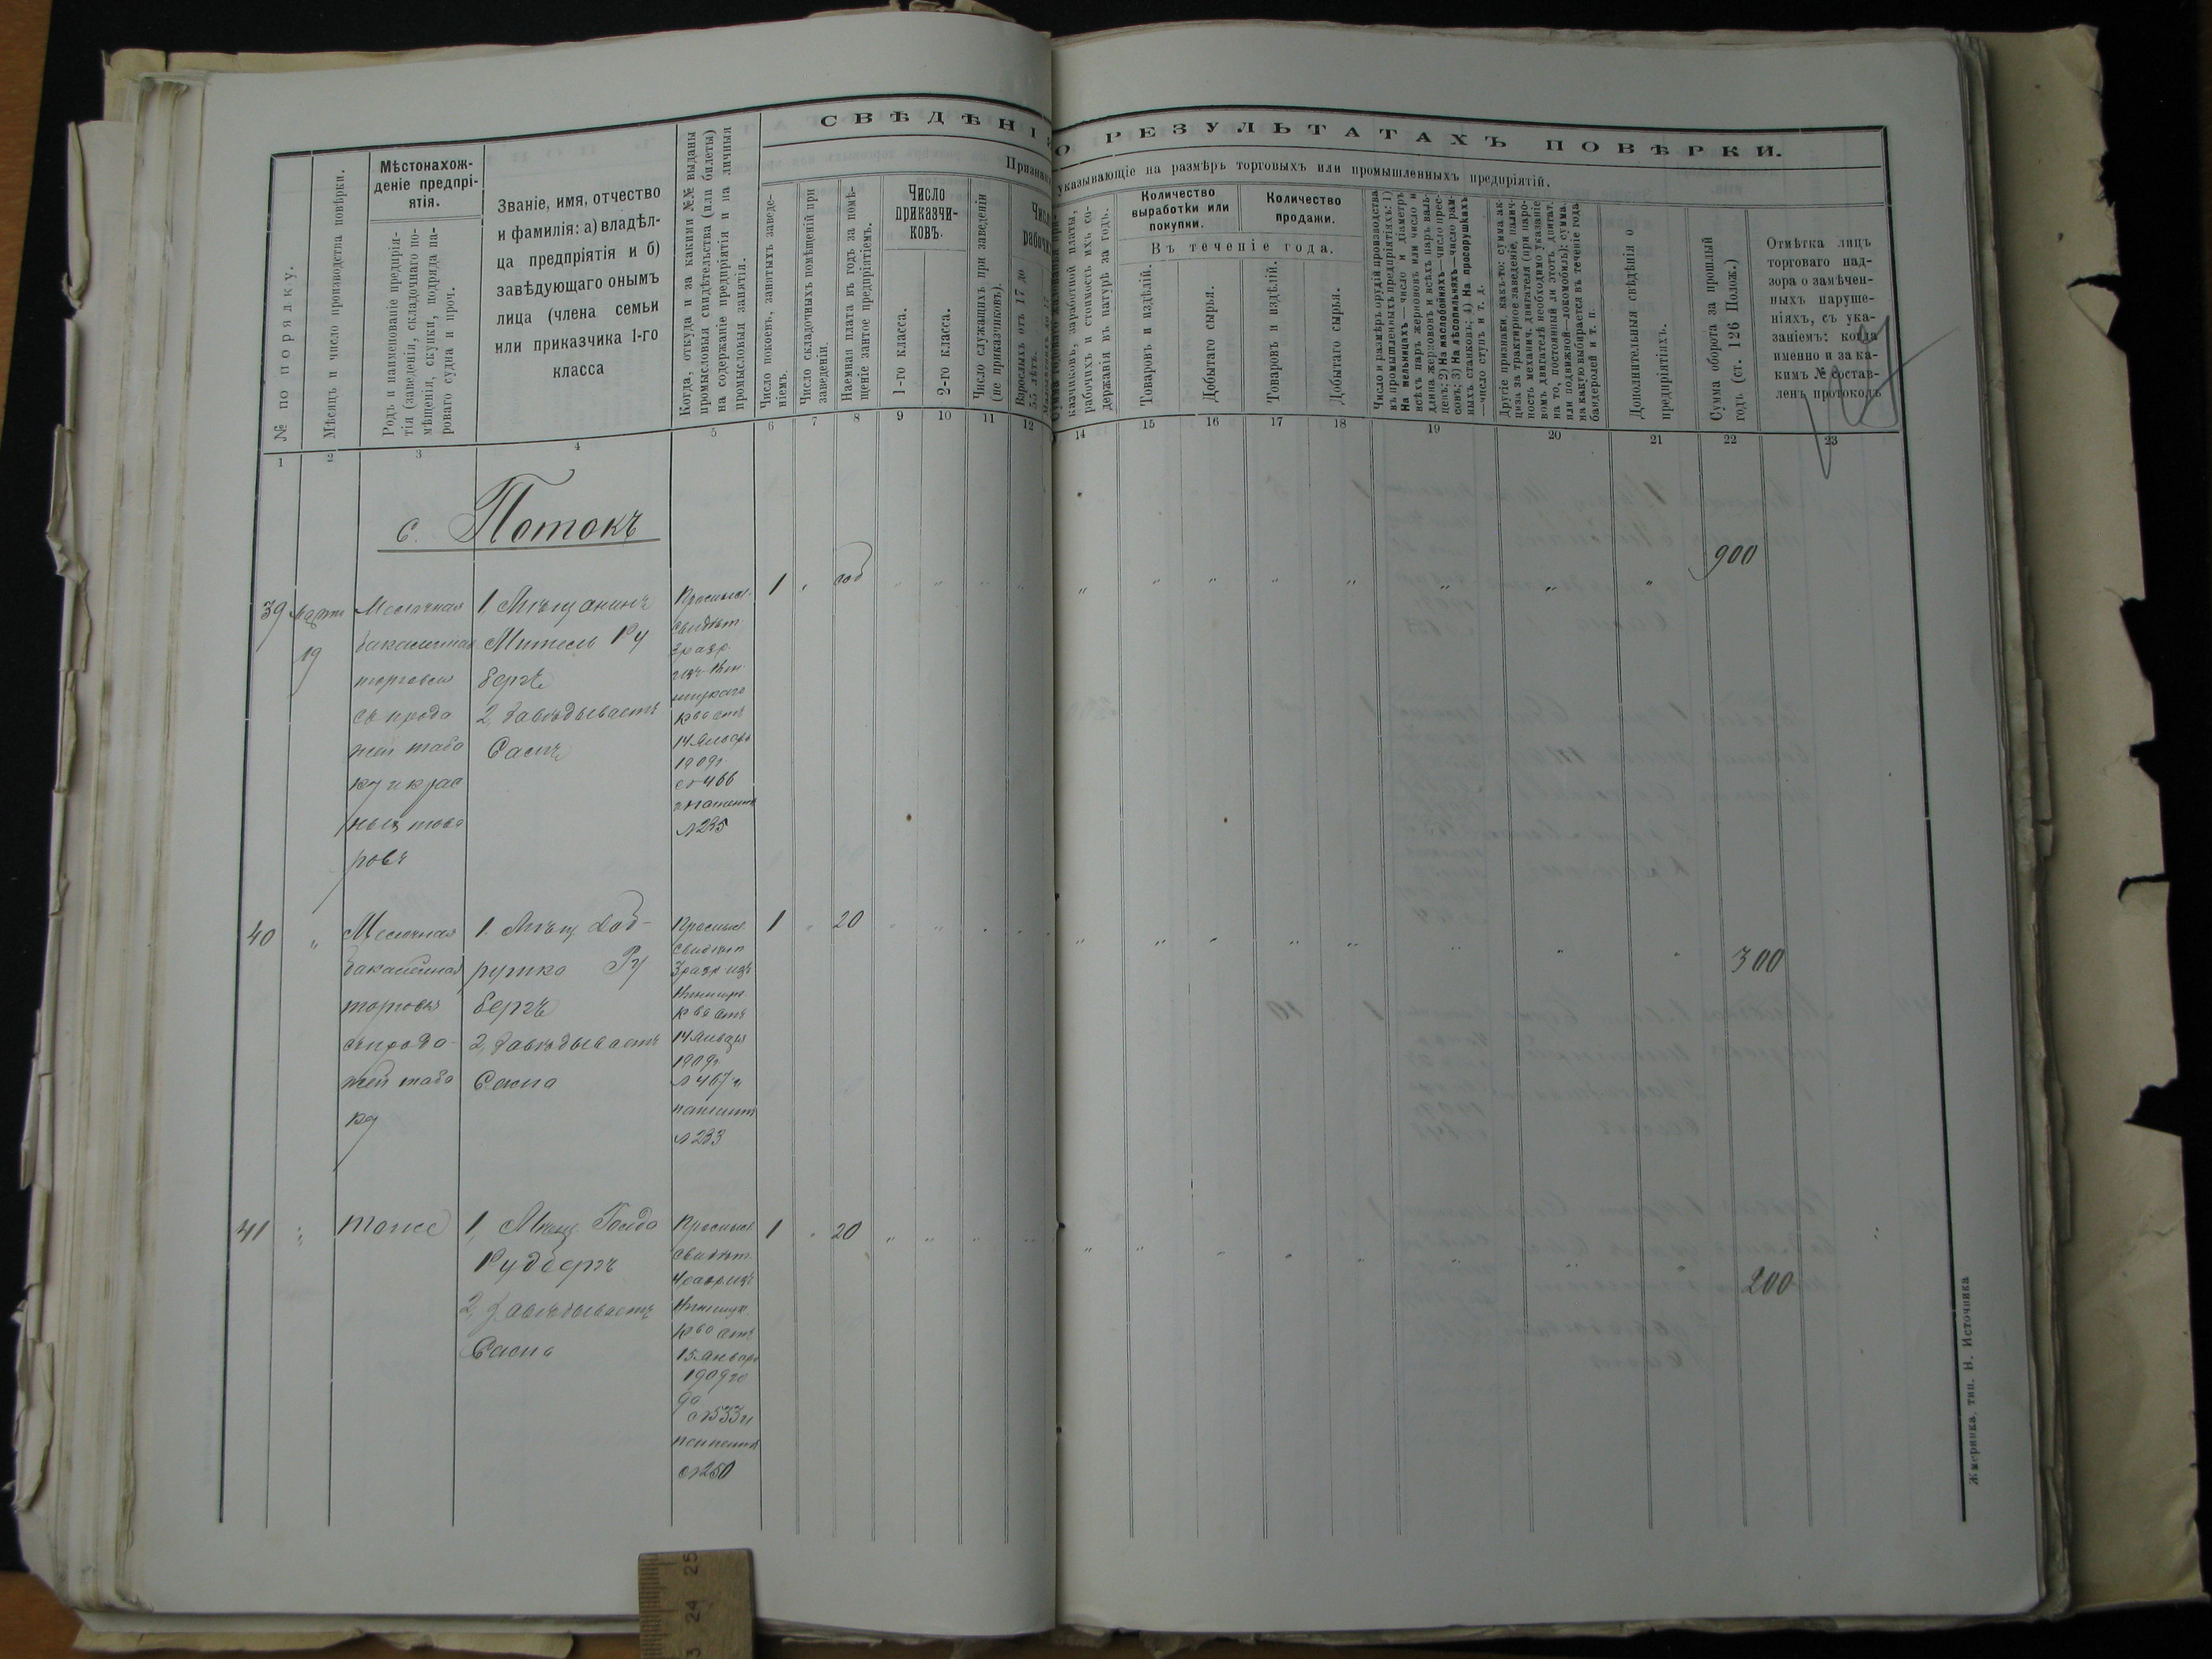 СВѢДѢНІЯ О РЕЗУЛЬТАТАХЪ ПОВѢРКИ.
Признаки, указывающіе на размѣръ торговыхъ или промышленныхъ предпріятій.
№ по порядку.
Мѣсяцъ и число производства повѣрки.
Мѣстонахож-
деніе предпрі-
ятія.
Родъ и наименованіе предпрія-
тія (заведенія, складочнаго по-
мѣщенія, скупки, подряда па-
роваго судна и проч.
Званіе, имя, отчество
и фамилія: а) владѣл-
ца предпріятія и б)
завѣдующаго онымъ
лица (члена семьи
или приказчика 1-го
класса
Когда, откуда и за какими №№ выданы
промысловыя свидѣтельства (или билеты)
на содержаніе предпріятія и на личныя
промысловыя занятія.
Число покоевъ, занятыхъ заведе-
ніемъ.
Число складочныхъ помѣщеній при
заведеніи.
Наемная плата въ годъ за помѣ-
щеніе занятое предпріятіемъ.
Число
приказчи-
ковъ.
1-го класса.
2-го класса.
Число служащихъ при заведеніи
(не приказчиковъ).
Взрослыхъ отъ 17 до
55 лѣтъ.
казчиковъ, заработной платы,
рабочихъ и стоимость ихъ со-
держанія въ натурѣ за годъ.
Количество
выработки или
покупки.
Количество
продажи.
Въ теченіе года.
Товаровъ и издѣлій.
Добытаго сырья.
Товаровъ и издѣлій.
Добытаго сырья.
Число и размѣръ орудій производства
въ промышленныхъ предпріятіяхъ: 1)
На мельницахъ — число и діаметръ
всѣхъ паръ жернововъ или число и
длина жернововъ и всѣхъ паръ валь-
цевъ; 2) На маслобойняхъ — число прес-
совъ; 3) На лѣсопильняхъ — число рам-
ныхъ станковъ; 4) На просорушкахъ
— число ступъ и т. д.
Другіе признаки, какъ-то: сумма ак-
циза за трактирное заведеніе, налич-
ность механич. двигателя (при паро-
вомъ двигателѣ необходимо указаніе
на то, постоянный ли этотъ двигат.
или подвижной — локомобиль); сумма,
на какую выбирается въ теченіе года
бандеролей и т. п.
Дополнительныя свѣдѣнія о
предпріятіяхъ.
Сумма оборота за прошлый
годъ (ст. 126 Полож.)
Отмѣтка лицъ
торговаго над-
зора о замѣчен-
ныхъ наруше-
ніяхъ, съ ука-
заніемъ: когда
именно и за ка-
кимъ № состав-
ленъ протоколъ
1 2 3 4 5 6 7 8 9 10 11 12 14 15 16 17 18 19 20 21 22 23
с. Потокъ
39 Марта
19
Мелочная
бакалейная
торговля
съ прода
жей таба
ку и крас
ныхъ това
ровъ
1, Мѣщанинъ
Митель Ру
бергъ
2, Завѣдываетъ
Самъ
Промысл.
свидѣт.
3 разр.
14 Января
1909г.
№ 466
№ 235
1 " " " " " " " " " " " " " 900
40 "
Мелочная
бакалейная
торговля
съ прода-
жей таба
ку
1. Мѣщ.
Ру
бергъ
2, Завѣдываетъ
Сама
Промысл.
свидѣт.
3 разр. изъ
к-ва отъ
14 Января
1909г.
№ 467 и
патентъ
№ 233
1 " 20 " " " " " " " " " " " " 300
41 "
тоже
1, Мѣщ. Голда
Рудбергъ
2, Завѣдываетъ
Сама
Промысл.
свидѣт.
4 разр. изъ
к-ва отъ
15 Января
1909 го
да
№ 533 и
патентъ
№ 250
1 " 20 " " " " " " " " " " " " 200
Жмеринка, тип. Н. Источника
3 24 25